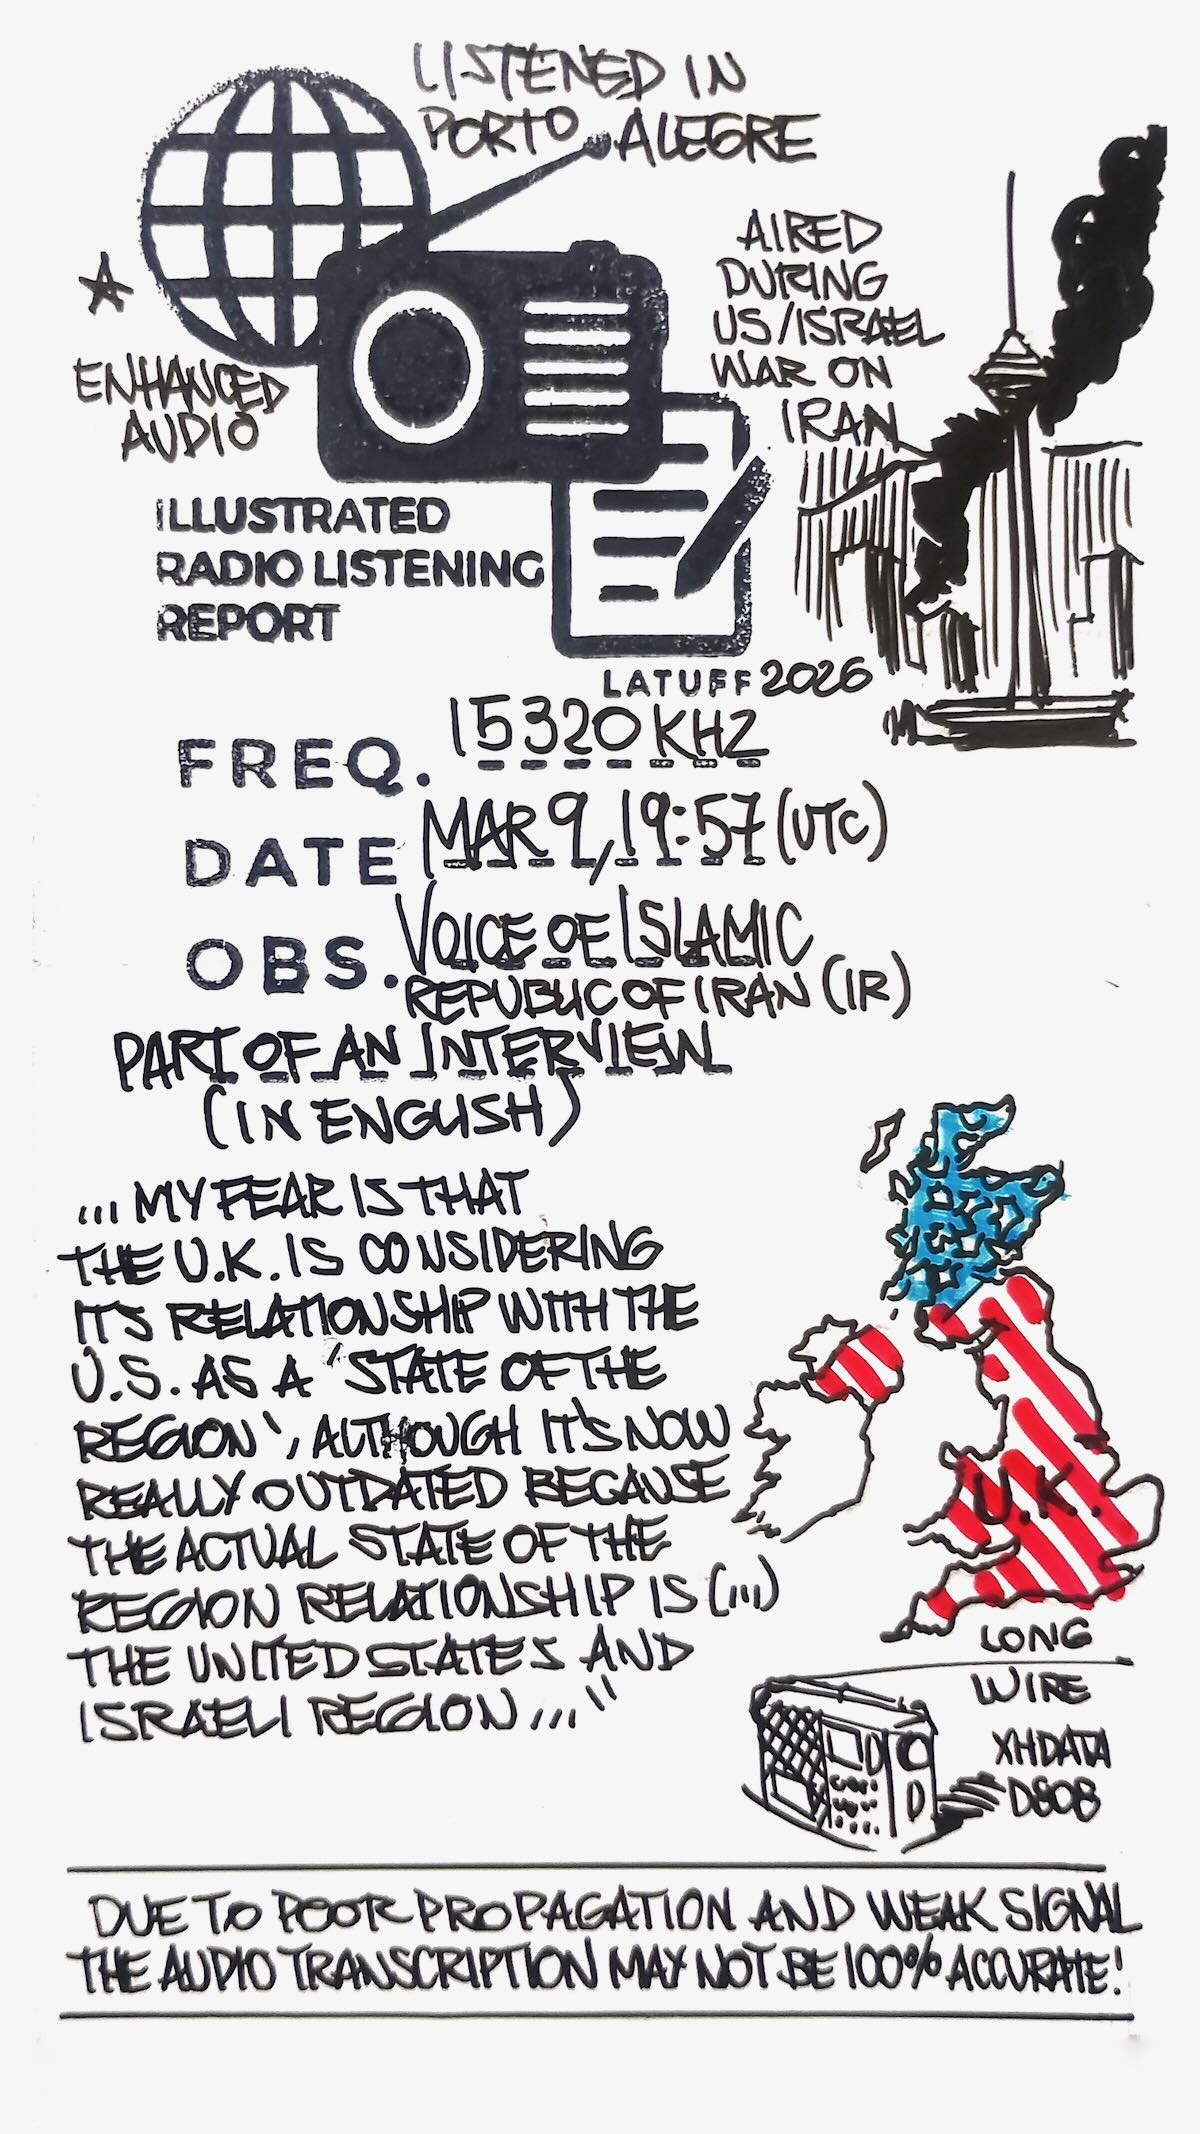 LISTENED IN
PORTO ALEGRE
AIRED
DURING
US/ISRAEL
WAR ON
IRAN
ENHANCED
AUDIO
ILLUSTRATED
RADIO LISTENING
REPORT
LATUFF 2026
FREQ. 15320 KHZ
DATE MAR 9, 19:57 (UTC)
OBS. VOICE OF ISLAMIC
REPUBLIC OF IRAN (IR)
PART OF AN INTERVIEW
(IN ENGLISH)
... MY FEAR IS THAT
THE U.K. IS CONSIDERING
ITS RELATIONSHIP WITH THE
U.S. AS A 'STATE OF THE
REGION', ALTHOUGH IT'S NOW
REALLY OUTDATED BECAUSE
THE ACTUAL STATE OF THE
REGION RELATIONSHIP IS (...)
THE UNITED STATES AND
ISRAELI REGION ..."
U.K.
LONG
WIRE
XHDATA
D808
DUE TO POOR PROPAGATION AND WEAK SIGNAL
THE AUDIO TRANSCRIPTION MAY NOT BE 100% ACCURATE!